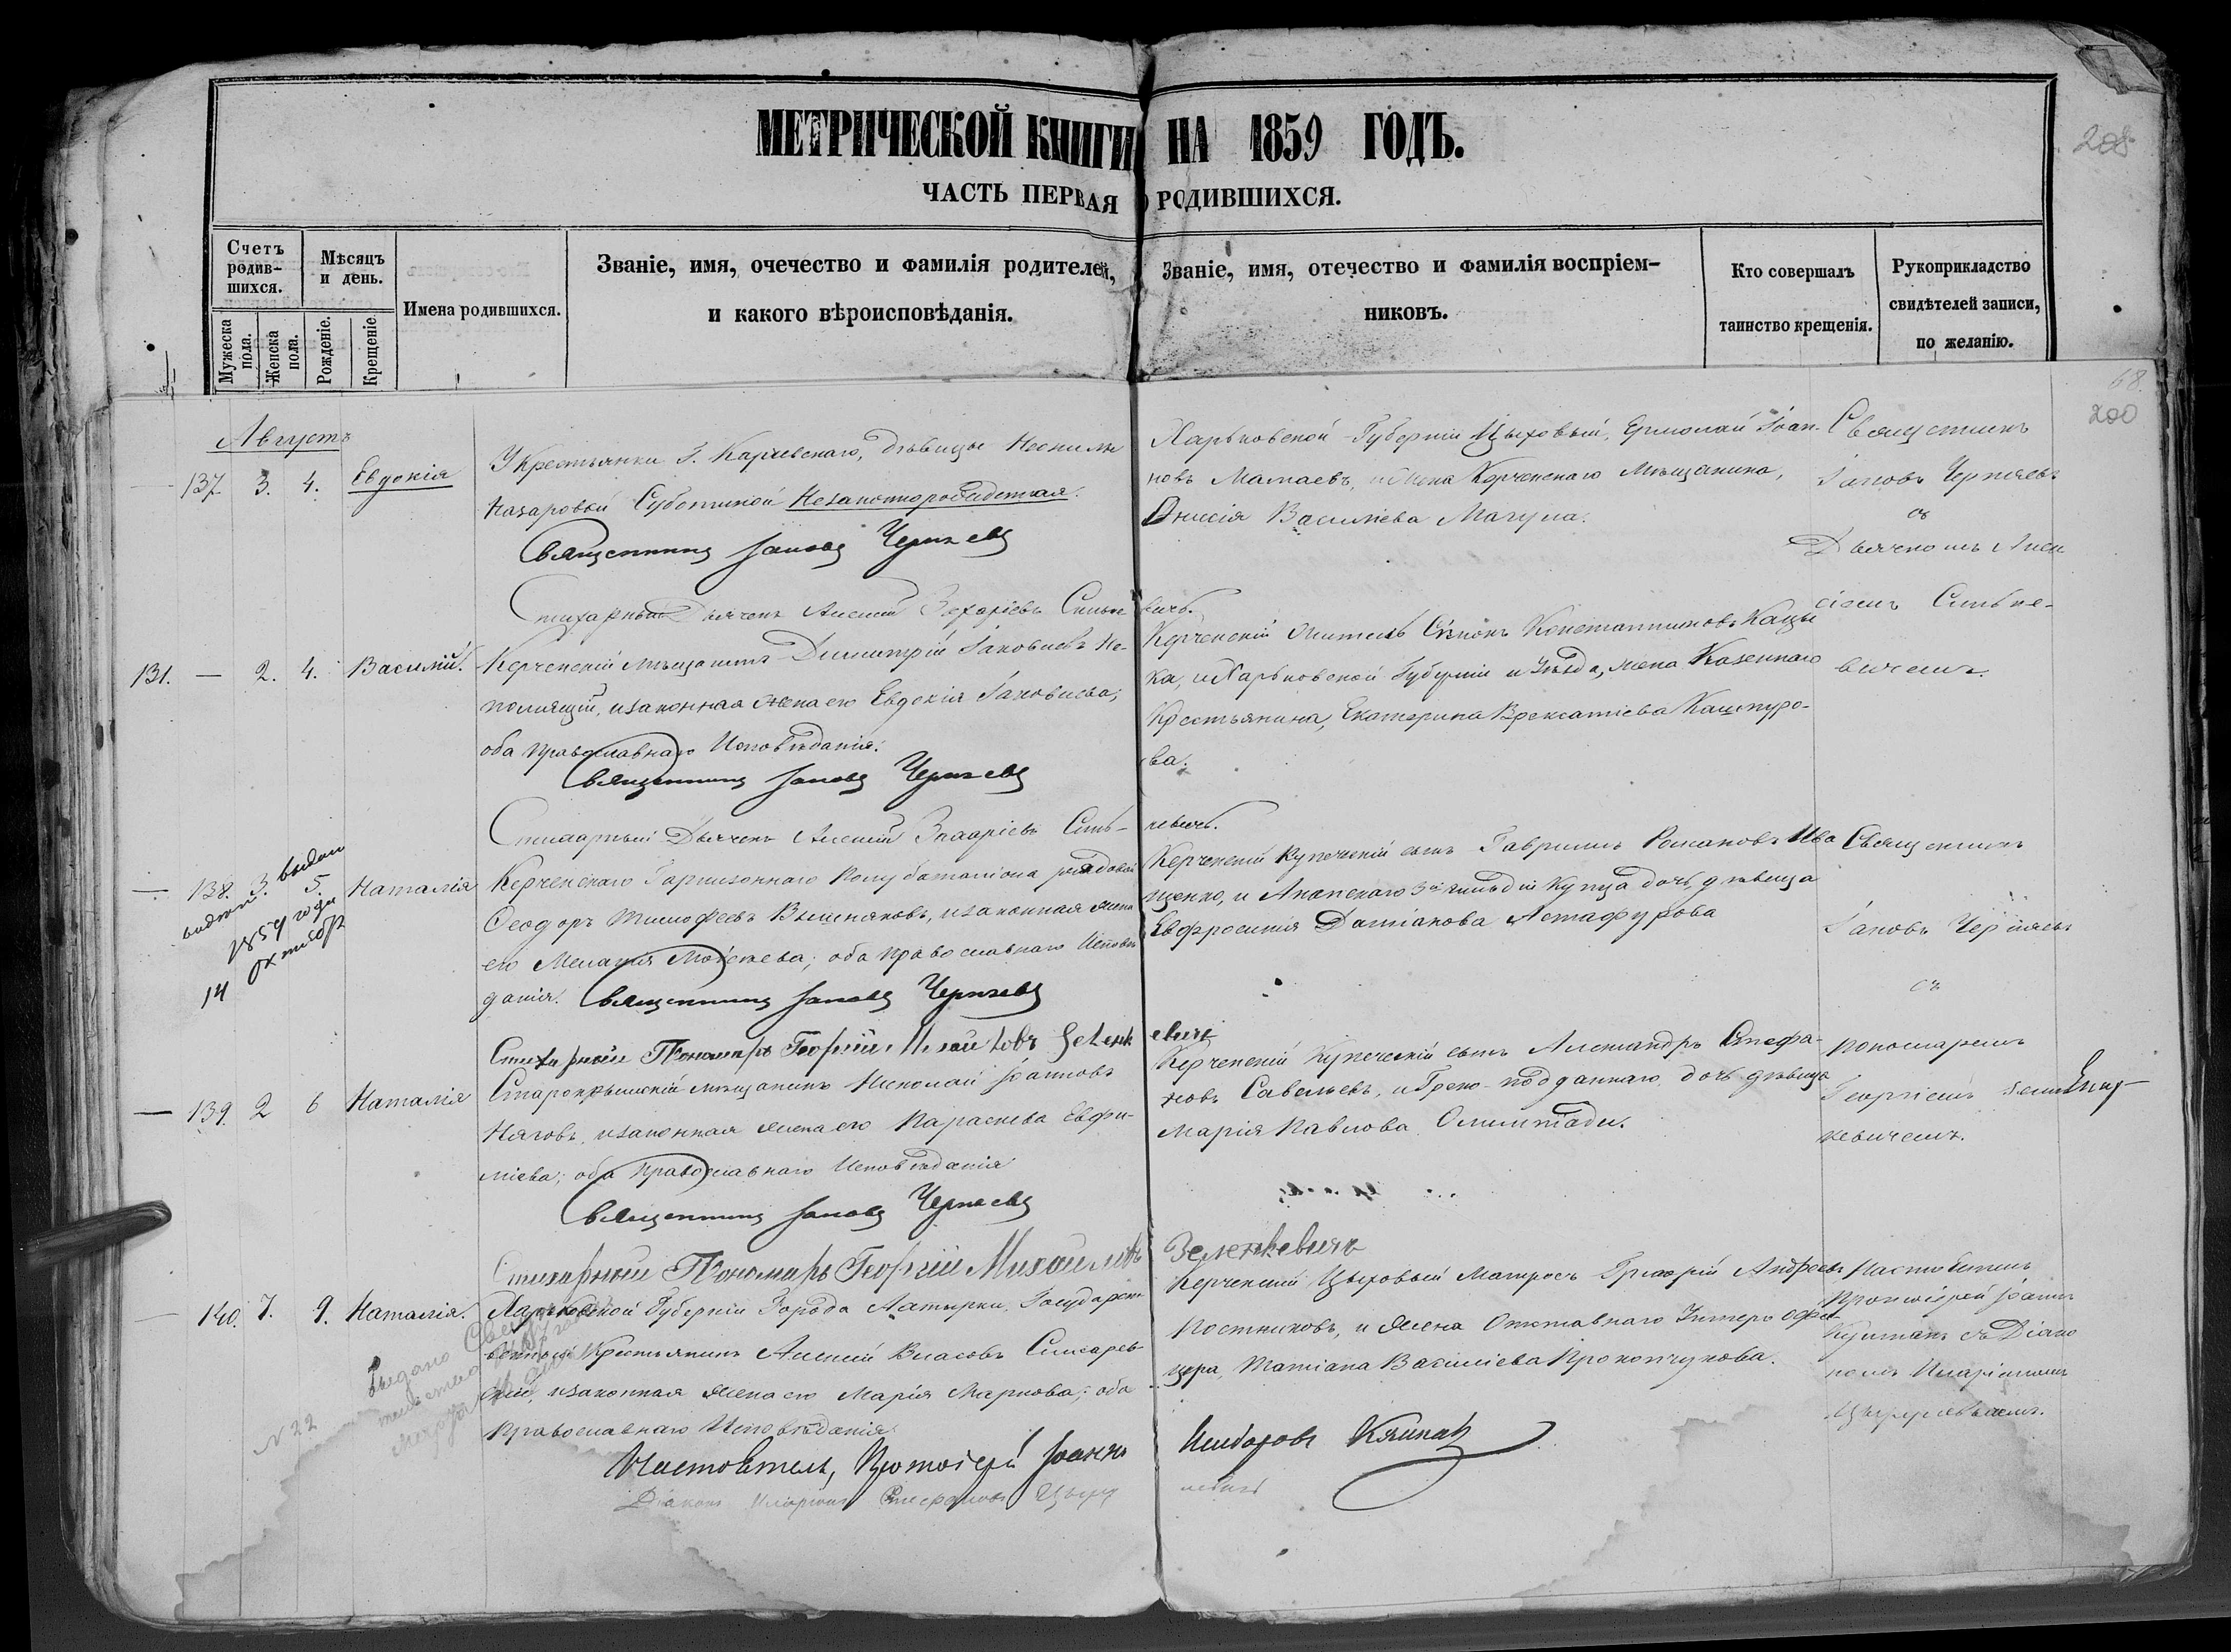 МЕТРИЧЕСКОЙ КНИГИ НА 1859 ГОДЪ.
208
ЧАСТЬ ПЕРВАЯ О РОДИВШИХСЯ.
Счетъ родив-
шихся.
Мужеска пола.
Женска пола.
Мѣсяцъ и день.
Рожденіе.
Крещеніе.
Имена родившихся.
Званіе, имя, очечество и фамилія родителей,
и какого вѣроисповѣданія.
Званіе, имя, отечество и фамилія воспріем-
никовъ.
Кто совершалъ
таинство крещенія.
Рукоприкладство
свидѣтелей записи,
по желанію.
68
200
Августъ
137. 3. 4. Евдокія
У Крестьянки Г. Карчевскаго, дѣвицы Неонилы
Назаровой Суботиной Незаконнорожденная.
Священникъ Іаковъ Черняевъ
Харьковской Губерніи Цеховый, Ермолай Іоан-
новъ Матаевъ, и жена Керченскаго Мѣщанина,
Анисія Василіева Магула.
Священникъ
Іаковъ Черняевъ
съ
Дьячкомъ Алек
сіемъ Синьке-
вичемъ.
Стихарный Дьячекъ Алексій Захаріевъ Синьке
вичъ.
131. — 2. 4. Василій.
Керченскій мѣщанинъ Димитрій Іаковлевъ Не-
помнящій, и законная жена его Евдокія Іаковлева;
оба православнаго Исповѣданія.
Священникъ Іаковъ Черняевъ
Керченскій житель Сѵмонъ Константиновъ Кацы
ка, и Харьковской Губерніи и Уѣзда, жена Казеннаго
Крестьянина, Екатерина Кашпуро-
ва.
Стихарный Дьячекъ Алексій Захаріевъ Синь-
кевичъ.
138. 3. 5. Наталія
1859 года
14 октябр
Керченскаго Гарнизоннаго Полубаталіона рядовой
Ѳеодоръ Тимофеевъ Вишняковъ, и законная жена
его Меланія Моѵсеева; оба православнаго Исповѣ
данія. Священникъ Іаковъ Черняевъ
Керченскій Купеческій сынъ Гавріилъ Романовъ Ива
щенко, и Анапскаго 3й гильдіи Купца дочь, дѣвица
Евфросинія Даміанова Астафурова
Священникъ
Іаковъ Черняевъ
съ
Пономаремъ
Георгіемъ
кевичемъ.
Стихарный Пономарь Георгій Михайловъ Зеленк
евичъ
139. 2 6 Наталія
Старокрымскій мѣщанинъ Николай Іоанновъ
Няговъ, и законная жена его Параскева Евфи-
міева; оба православнаго Исповѣданія
Священникъ Іаковъ Черняевъ
Керченскій Купеческій сынъ Александръ Стефа-
новъ Савельевъ, и Греко-подданнаго дочь дѣвица
Марія Павлова Олимпіади.
Стихарный Пономарь Георгій Михайловъ
Зеленкевичъ
140. 7. 9. Наталія.
N 22
Харьковской Губерніи Города Ахтырки, Государст
венный Крестьянинъ Алексій Власовъ Слисарев-
скій, и законная жена его Марія Маркова; оба
Православнаго Исповѣданія.
Настоятель, Протоіерей Іоаннъ
Діаконъ Иларіонъ Стефановъ
Керченскій Цеховый Матросъ Григорій Андреевъ
Постниковъ, и жена Отставнаго Унтеръ-Офи-
цера, Татіана Василіева Прокопчукова.
Настоятель
Протоіерей Іоаннъ
съ Діако
номъ Иларіономъ